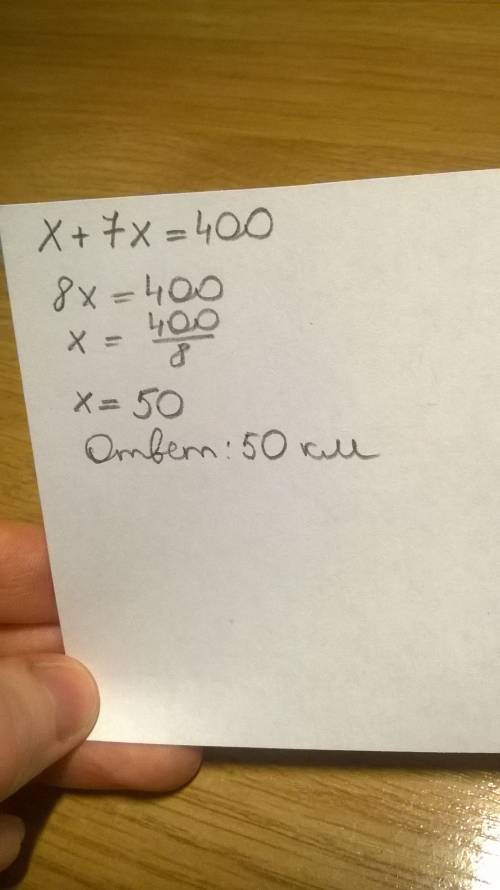 x + 7x = 400
8x = 400
x = 400/8
x = 50
Ответ: 50 км